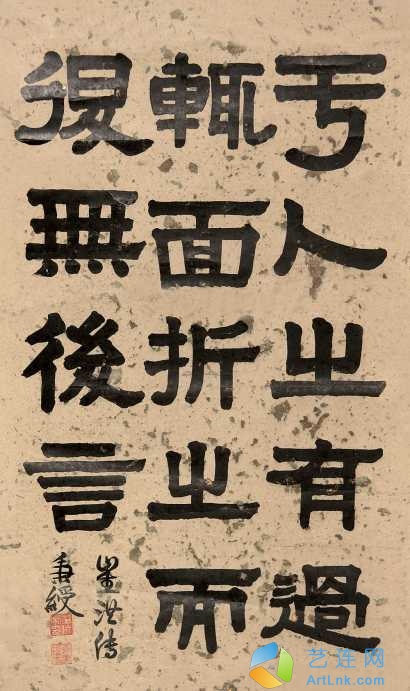 于人之有過
輒面折之而
退無後言
崔洪傳
秉綬
艺连网
ArtLnk.com